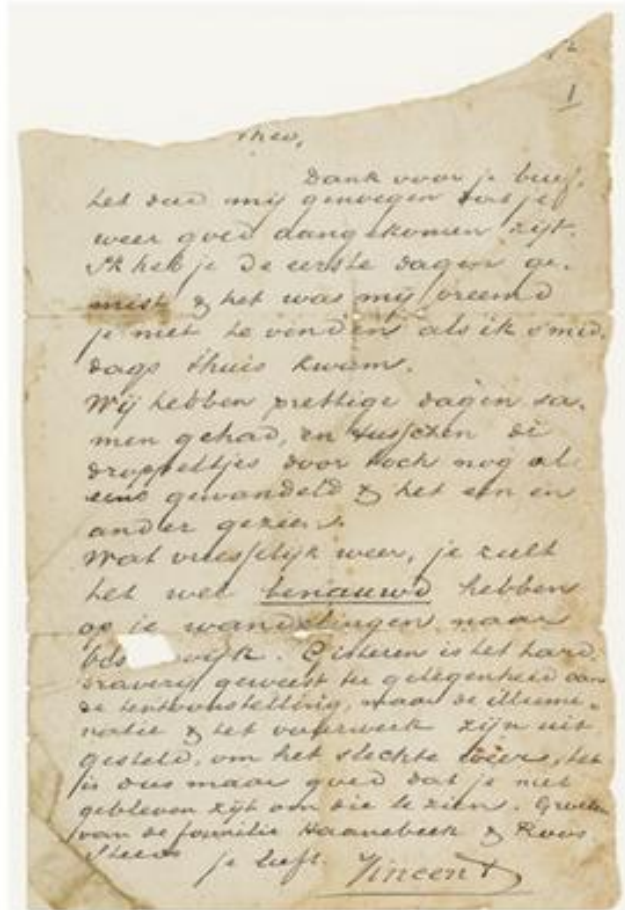 1
Theo,
Dank voor je brief,
het deed mij genoegen dat je
weer goed aangekomen zijt.
Ik heb je de eerste dagen ge-
mist & het was mij vreemd
je niet te vinden als ik s'mid-
dags t'huis kwam.
Wij hebben prettige dagen sa-
men gehad, en tusschen de
droppeltjes door toch nog al
eens gewandeld & het een en
ander gezien.
Wat vreesselijk weer, je zult
het wel benauwd hebben
op je wandelingen naar
wijk. Gisteren is het hard-
draverij geweest ter gelegenheid van
de tentoonstelling, maar de illumi-
natie & het vuurwerk zijn uit
gesteld, om het slechte weer, het
is dus maar goed dat je niet
gebleven zijt om die te zien. Groeten
van de familie Haanebeek & Roos
Steeds
je liefh. Vincent